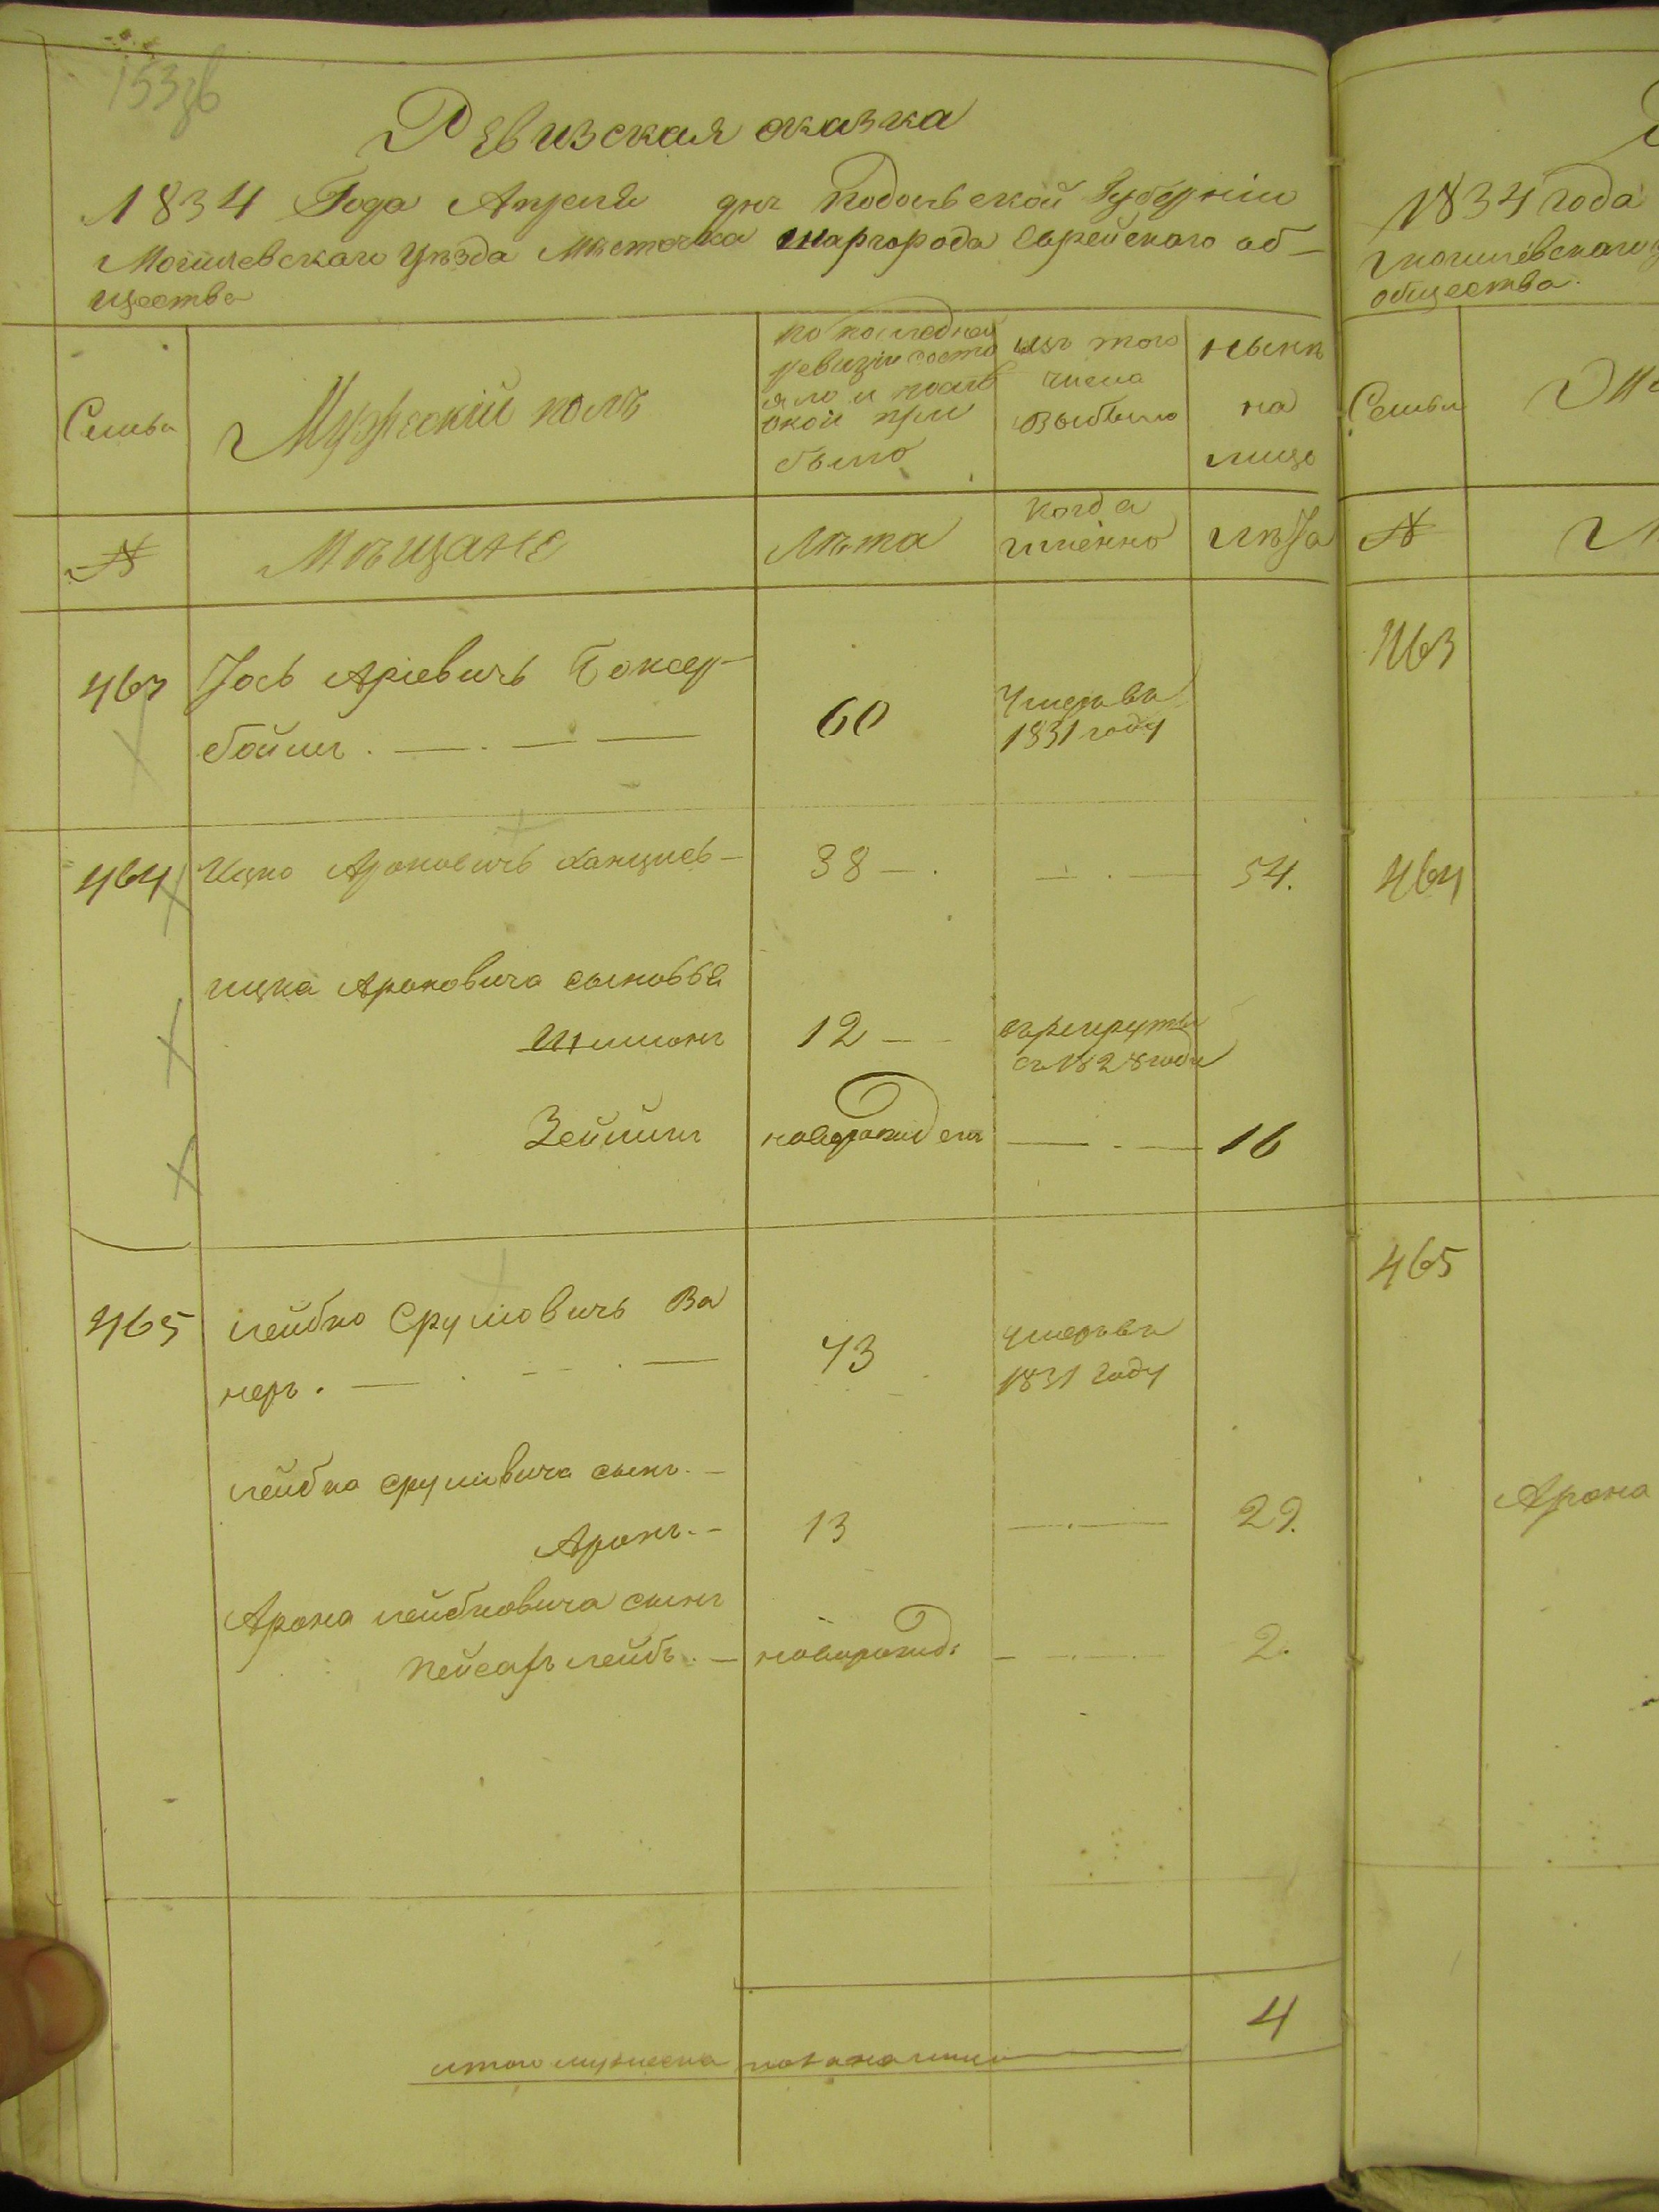 153зв
Ревизская сказка
1834 Года Апреля дня Подольской Губернiи
Могилевскаго Уѣзда Мѣстечка Шаргорода Еврейскаго об-
щества
Семьи
Мужескiй полъ
по последней
ревизiи состо
яло и после
оной при
было
изъ того
числа
выбыло
нынѣ
на
лицо
№
Мѣщане
Лѣта
когда
именно
лѣта
463
Iось Арiевичь Боксер-
боймъ
60
Умеръ въ
1831 году
464
Ицко Ароновичь
38
54.
ицка Ароновича сыновья
Шлиомъ
12
въ рекруты
съ 1828 года
Зейлигъ
новорожденъ
16
465
лейбко Срулювичь Ва
неръ
43
умеръ въ
1831 году
лейбка срулювича сынъ
Аронъ
13
29.
Арона лейбковича сынъ
пейсахъ лейбъ
новорожд:
2.
4
итого мужеска пола на лицо
1834 года
могилевскаго
общества.
Семьи
№
463
464
465
Арона